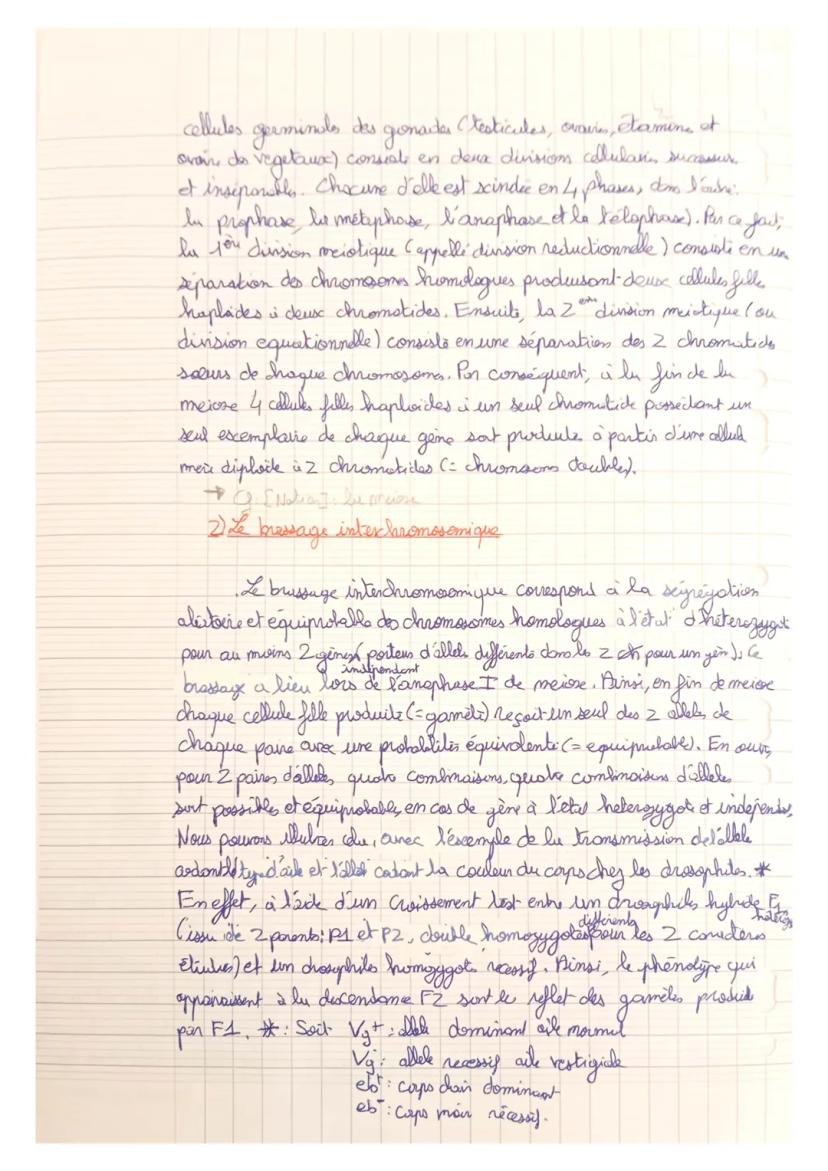 cellules germinales des gonades (testicules, ovaires, étamine et
ovaire des végétaux) consiste en deux divisions cellulaires successives
et inséparables. Chacune d'elle est scindée en 4 phases, dans l'ordre:
la prophase, la métaphase, l'anaphase et la télophase). Par ce fait,
la 1ère division meiotique (appellé division reductionnelle) consiste en une
séparation des chromosomes homologues produisant deux cellules filles
haploïdes à deux chromatides. Ensuite, la 2ème division meiotique (ou
division equationnelle) consiste en une séparation des 2 chromatides
sœurs de chaque chromosomes. Par conséquent, à la fin de la
meiose 4 cellules filles haploïdes à un seul chromatide possédant un
seul exemplaire de chaque gène sont produite à partir d'une cellule
mère diploïde à 2 chromatides (= chromosomes doubles).
→ [Notion]: la meiose
2) Le brassage interchromosomique
Le brassage interchromosomique correspond à la ségrégation
aléatoire et équiprobable des chromosomes homologues à l'état d'hétérozygote
pour au moins 2 gènes (porteurs d'allèles différents dans les 2 ch pour un gène). Ce
indépendant
brassage a lieu lors de l'anaphase I de meiose. Ainsi, en fin de meiose
chaque cellule fille produite (= gamète) reçoit un seul des 2 allèles de
chaque paire avec une probabilités équivalente (= equiprobable). En outre,
pour 2 paires d'allèles, quatre combinaisons, quatre combinaisons d'allèles
sont possibles et équiprobables, en cas de gène à l'état heterozygote et independants.
Nous pouvons illustrer cela, avec l'exemple de la transmission de l'allèle
codant le type d'aile et l'allèle codant la couleur du corps chez les drosophiles. *
En effet, à l'aide d'un croisement test entre un drosophiles hybride F1
différents
(issu de 2 parents: P1 et P2, double homozygotes pour les 2 caractères
étudiés) et un drosophiles homozygote récessif. Ainsi, le phénotype qui
apparaissent à la descendance F2 sont le reflet des gamètes produit
par F1. *: Soit Vg+ : allèle dominant aile normal
Vg-: allele recessif aile vestigiale
eb+: corps clair dominant
eb-: corps noir récessif.